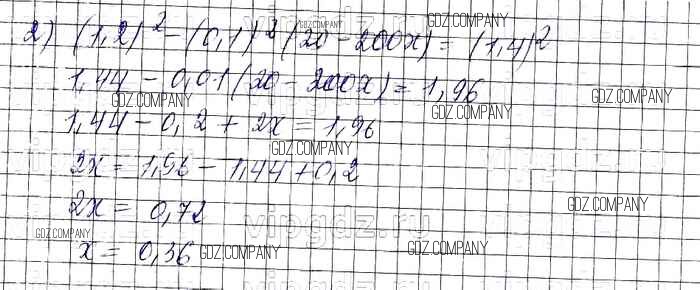 2) (1,2)² - (0,1)² (20 - 200x) = (1,4)²
1,44 - 0,01 (20 - 200x) = 1,96
1,44 - 0,2 + 2x = 1,96
2x = 1,96 - 1,44 + 0,2
2x = 0,72
x = 0,36
GDZ.COMPANY
GDZ.COMPANY
GDZ.COMPANY
GDZ.COMPANY
GDZ.COMPANY
GDZ.COMPANY
GDZ.COMPANY
GDZ.COMPANY
GDZ.COMPANY
GDZ.COMPANY
vipgdz.ru